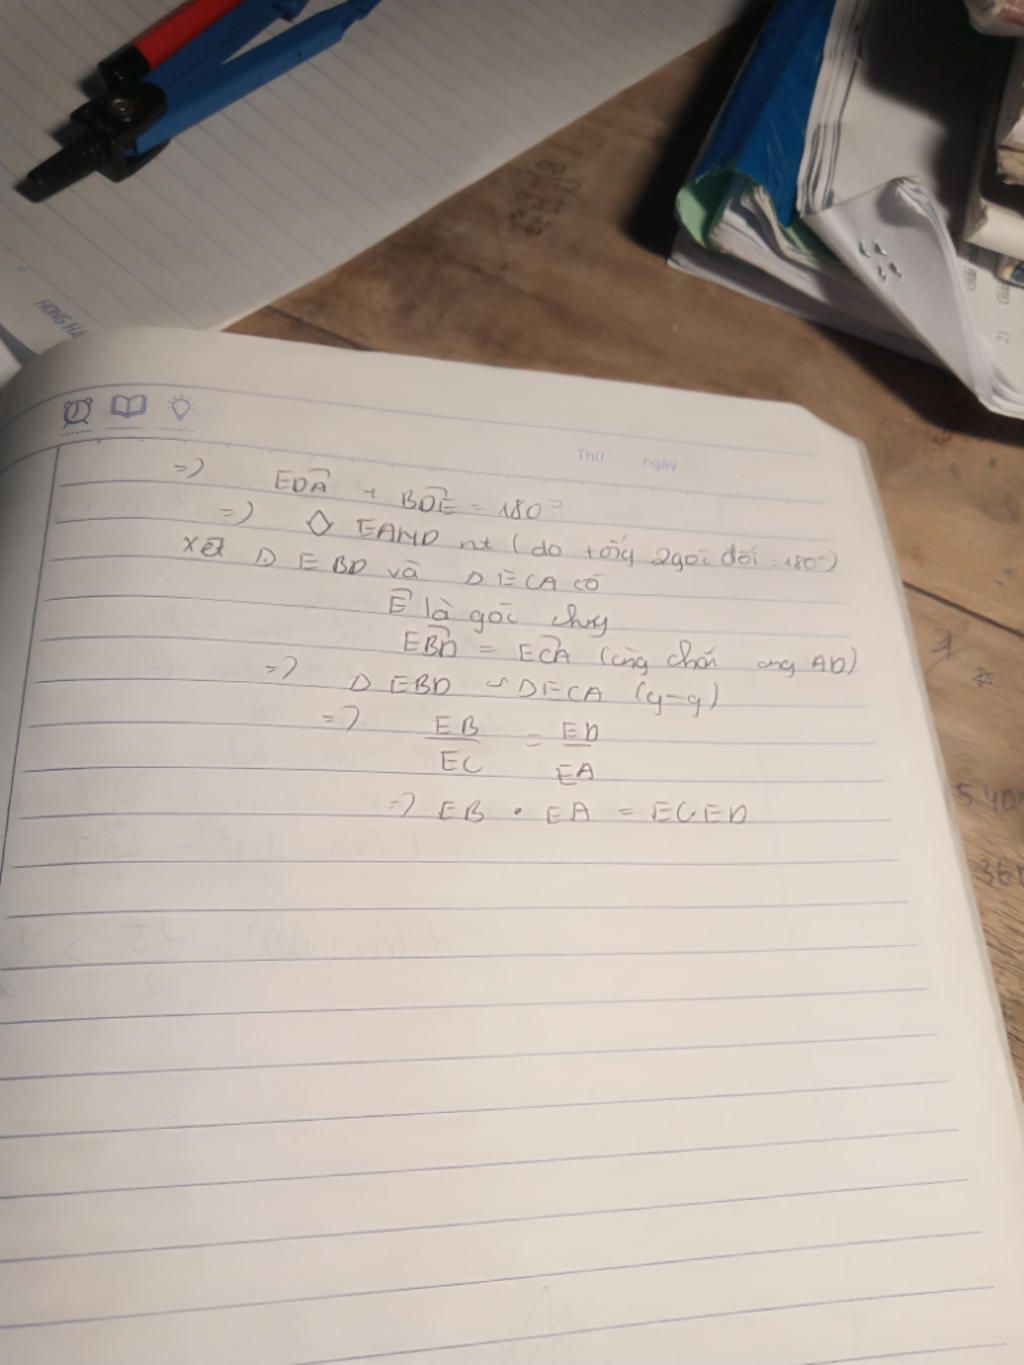 HONG HA
Thứ ngày
=> EDA + BDE = 180°
=> ◇ EAMD nt (do tổng 2 góc đối = 180°)
xét Δ EBD và Δ ECA có
E là góc chung
EBD = ECA (cùng chắn cung AD)
=> Δ EBD ∽ Δ ECA (g-g)
=> EB/EC = ED/EA
=> EB . EA = EC.ED
540
360
2)